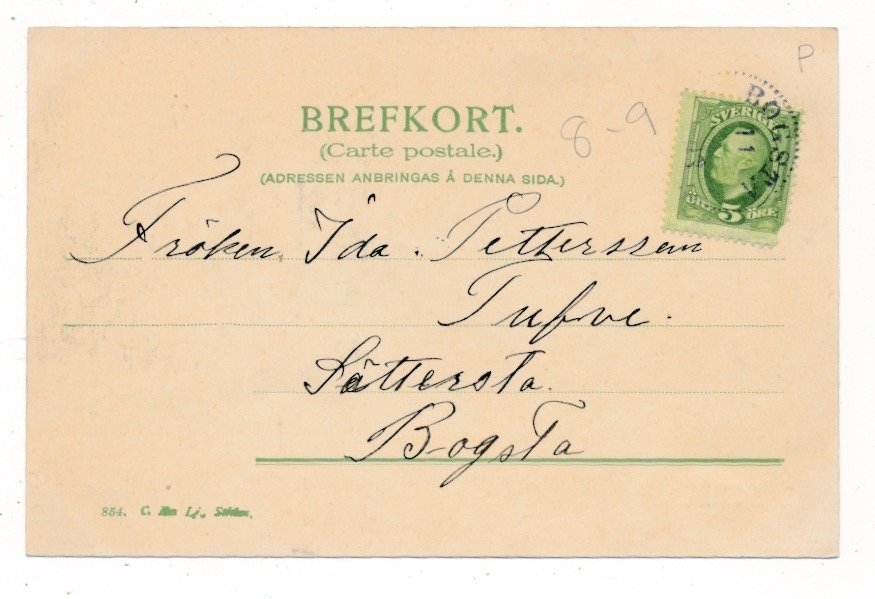 P
BREFKORT.
(Carte postale.)
(ADRESSEN ANBRINGAS Å DENNA SIDA.)
8-9
BOGSTA
11
SVERIGE
5 ÖRE
Fröken Ida. Pettersson
Tufve.
Sättersta.
Bogsta
854. C.